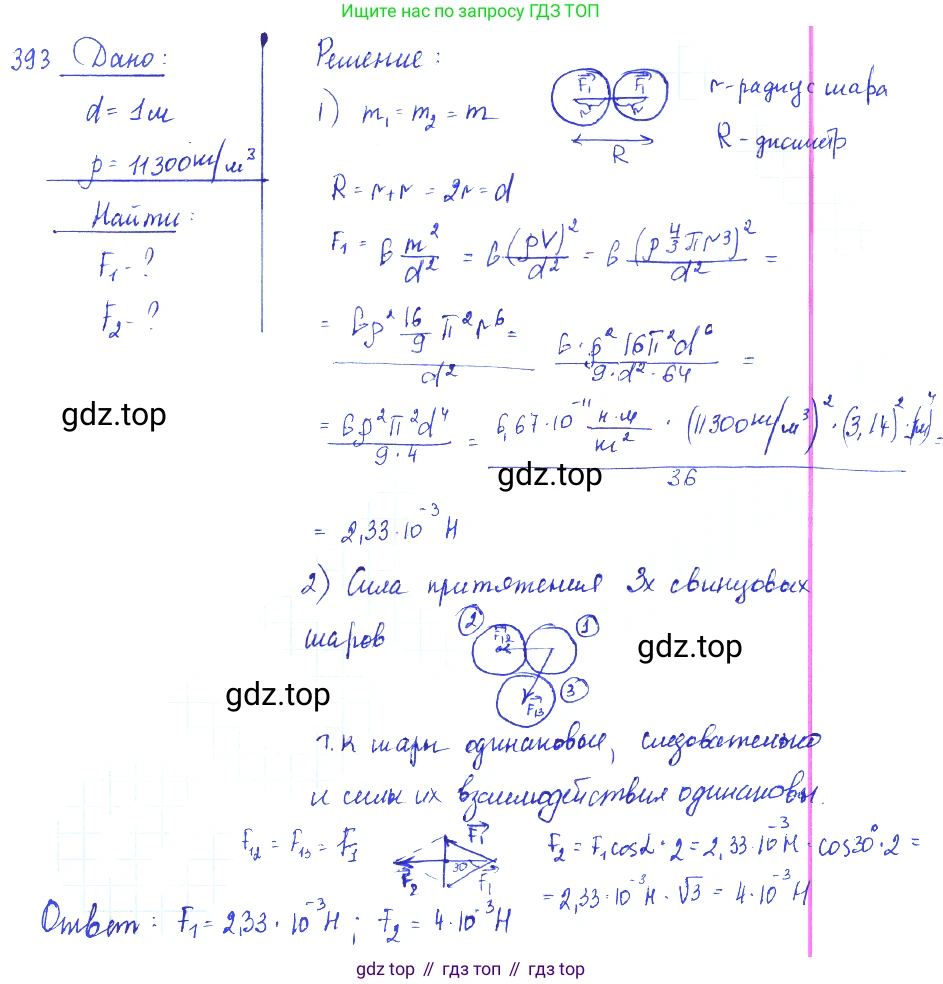 Ищите нас по запросу ГДЗ ТОП
393 Дано:
d = 1м
ρ = 11300 кг/м³
Найти:
F₁ - ?
F₂ - ?
Решение:
1) m₁ = m₂ = m
F₁ F₁
r r
R
r - радиус шара
R - диаметр
R = r + r = 2r = d
F₁ = G m²/d² = G (ρV)²/d² = G (ρ 4/3 πr³)²/d² =
= Gρ² 16/9 π² r⁶ / d² = G · ρ² 16π²d⁶ / 9 · d² · 64 =
= Gρ²π²d⁴ / 9 · 4 = 6,67 · 10⁻¹¹ Н · м/кг² · (11300 кг/м³)² · (3,14)² · (1м)⁴ / 36 =
gdz.top
gdz.top
= 2,33 · 10⁻³ Н
2) Сила притяжения 3х свинцовых
шаров
2 F₁₂ 1
3 F₁₃
gdz.top
gdz.top
Т.к шары одинаковые, следовательно
и силы их взаимодействия одинаковы.
F₁₂ = F₁₃ = F₁
F₁
F₂ 30° F₁
F₂ = F₁cosα · 2 = 2,33 · 10⁻³ Н · cos30° · 2 =
= 2,33 · 10⁻³ Н · √3 = 4 · 10⁻³ Н
Ответ: F₁ = 2,33 · 10⁻³ Н; F₂ = 4 · 10⁻³ Н
gdz.top // гдз топ // gdz.top